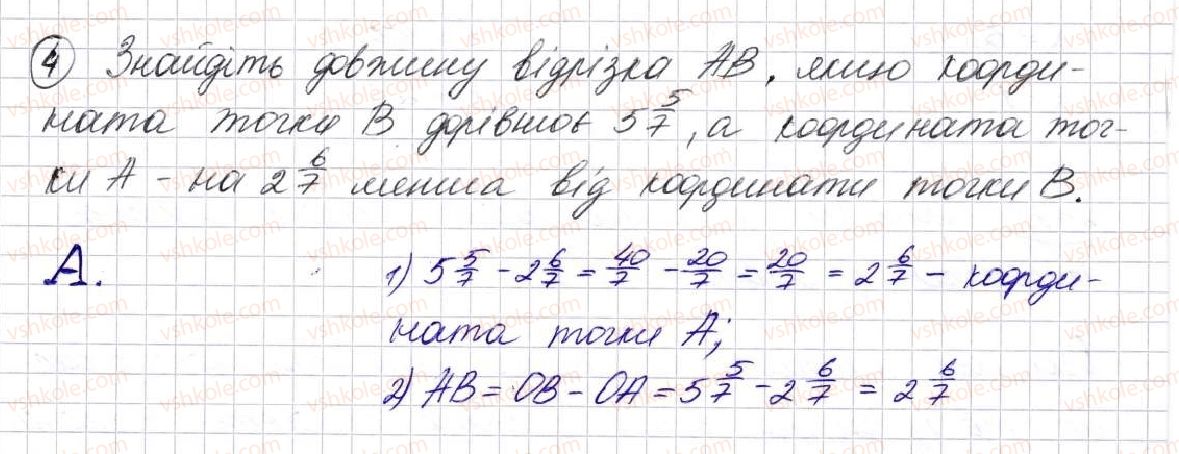 4 Знайдіть довжину відрізка AB, якщо коорди-
ната точки B дорівнює 5 5/7, а координата точ-
ки A - на 2 6/7 менша від координати точки B.
А. 1) 5 5/7 - 2 6/7 = 40/7 - 20/7 = 20/7 = 2 6/7 - коорди-
ната точки A;
2) AB = OB - OA = 5 5/7 - 2 6/7 = 2 6/7